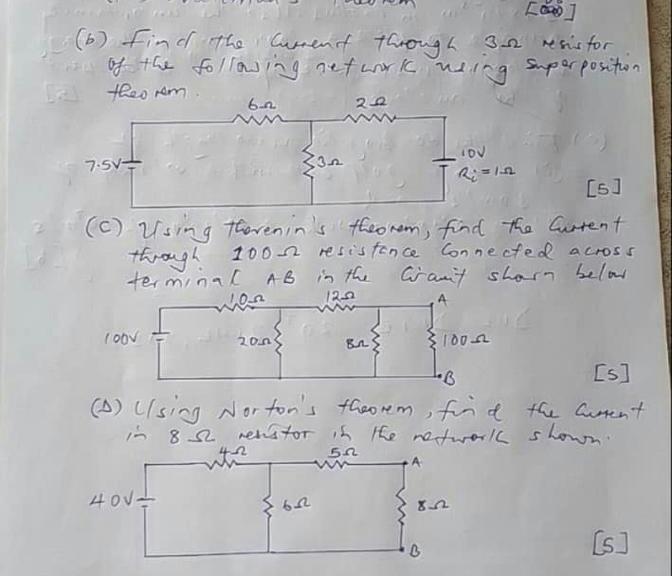 (b) Find the Current through 3Ω resistor
of the following network using superposition
theorem.
6Ω 2Ω
7.5V 3Ω 10V
Ri=1Ω
[5]
(C) Using thevenin's theorem, find the Current
through 100Ω resistance Connected across
terminal AB in the Circuit shown below
10Ω 12Ω A
100V 20Ω 8Ω 100Ω
B [5]
(D) Using Norton's theorem, find the Current
in 8Ω resistor in the network shown.
4Ω 5Ω A
40V 6Ω 8Ω
B [5]